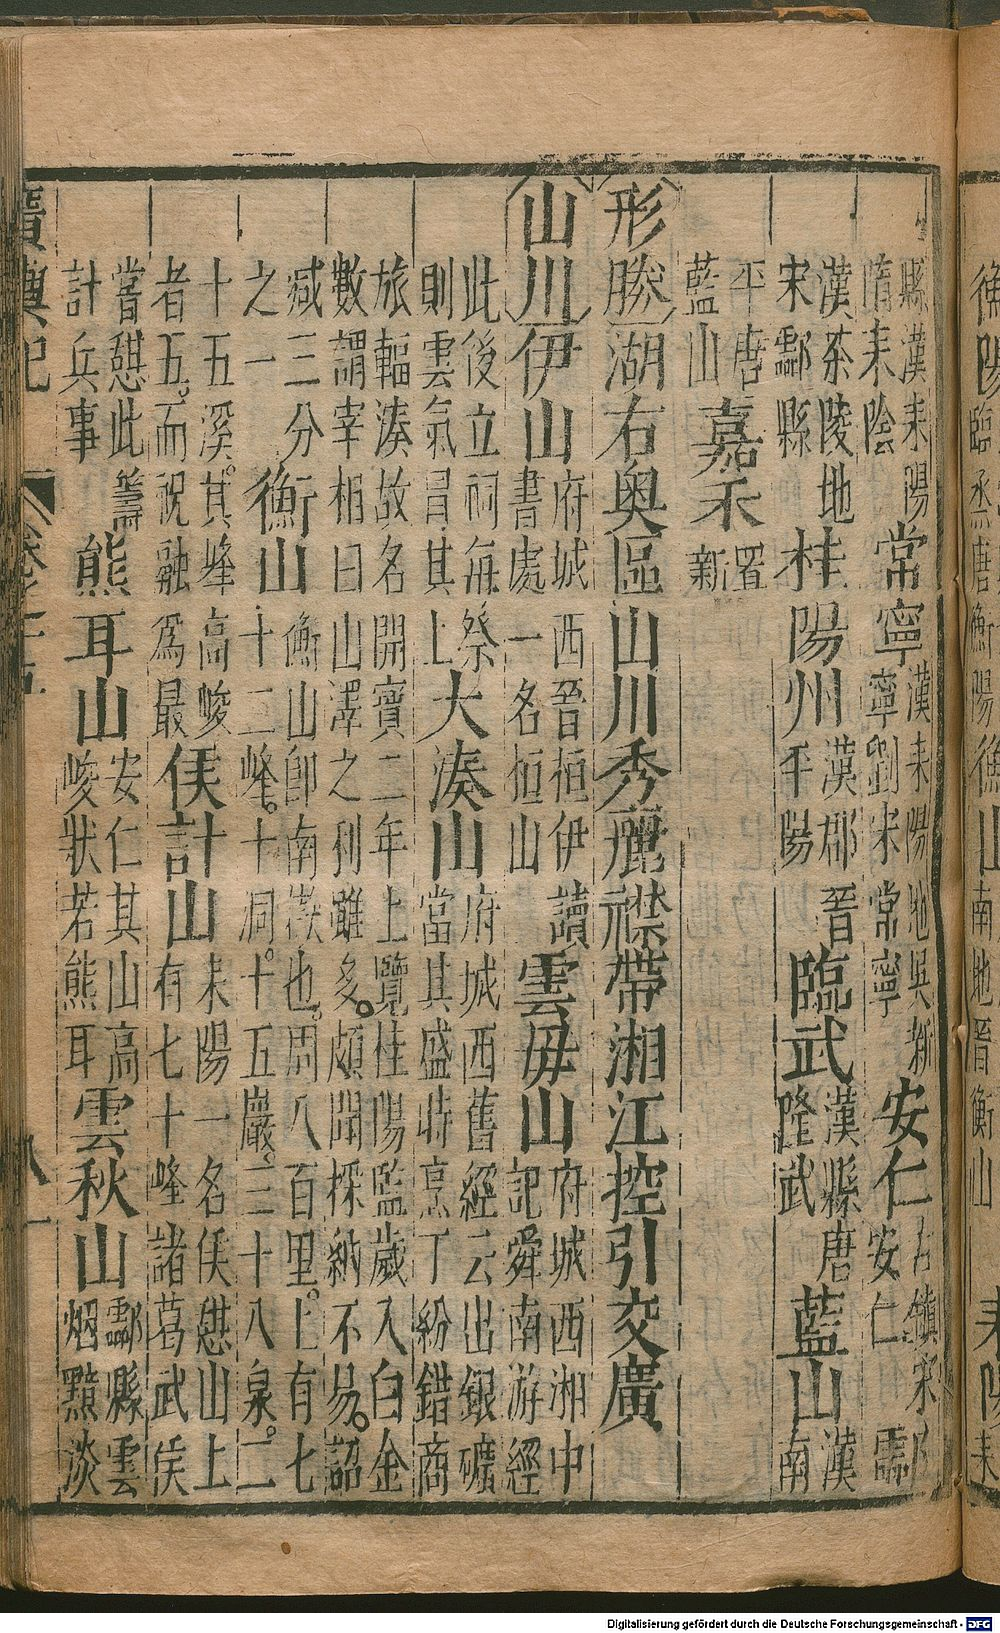 衡陽臨烝唐衡陽衡山南地晉衡山耒陽耒
縣漢耒陽
隋耒陰
常寧
漢耒陽地吳新
寧劉宋常寧
安仁
古鎮宋
安仁
酃
漢茶陵地
宋酃縣
桂陽州
漢郡晉
平陽
臨武
漢縣唐
隆武
藍山
漢
南
平唐
藍山
嘉禾
新置
形勝湖右奧區山川秀麗襟帶湘江控引交廣
山川伊山
府城西晉桓伊讀
書處一名桓山
雲母山
府城西湘中
記舜南游經
此後立祠每祭
則雲氣冒其上
大湊山
府城西舊經云出銀礦
當其盛時烹丁紛錯商
旅輻湊故名開寶二年上覽桂陽監歲入白金
數謂宰相曰山澤之利雖多。頗聞採納不易。詔
減三分
之一
衡山
衡山即南嶽也。周八百里。上有七
十二峰。十洞。十五巖。三十八泉。二
十五溪。其峰高峻
者五。而祝融為最
侯計山
耒陽一名侯憩山上
有七十峰諸葛武侯
嘗憩此籌
計兵事
熊耳山
安仁其山高
峻狀若熊耳
雲秋山
酃縣雲
烟黯淡
廣輿記
Digitalisierung gefördert durch die Deutsche Forschungsgemeinschaft - DFG